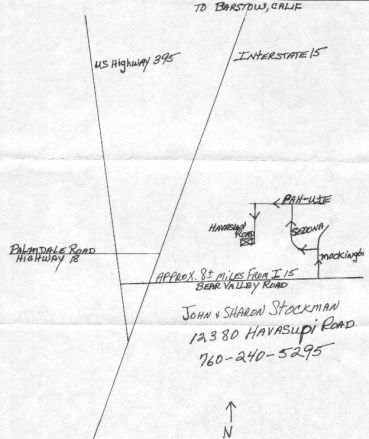 TO BARSTOW, CALIF
US Highway 395
INTERSTATE 15
PAH-UTE
HAVASUPI
ROAD
SEDONA
MOCKINGBI
PALMDALE ROAD
HIGHWAY 18
APPROX. 8± MILES FROM I 15
BEAR VALLEY ROAD
JOHN & SHARON STOCKMAN
12380 HAVASUPI ROAD
760-240-5295
N